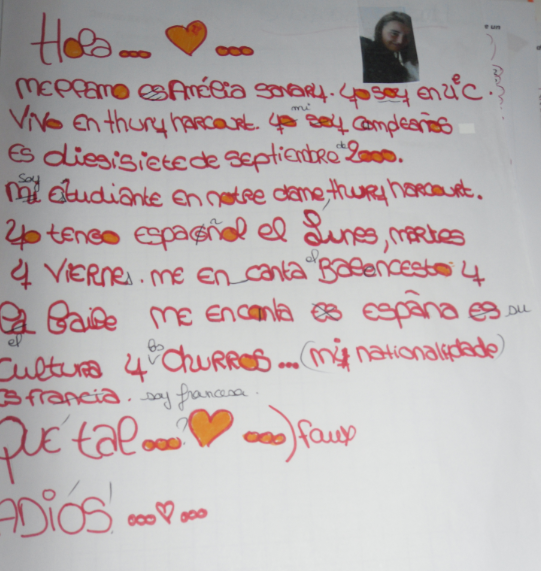 Hola... ...
Me llamo es Amélia sonary. yo soy en 4°C.
Vivo en thury harcourt. yo mi soy compleaños
es diesisiete de septiembre de 2000.
mi soy estudiante en notre dame, thury harcourt.
yo tengo español el lunes, martes
y viernes. me en canta el balencesto y
el baile me encanta es españa es su
cultura y los churros... (mi nationalidade)
es francia. soy francesa.
Qué tal...? ...) faux
ADiÓS! ... ...